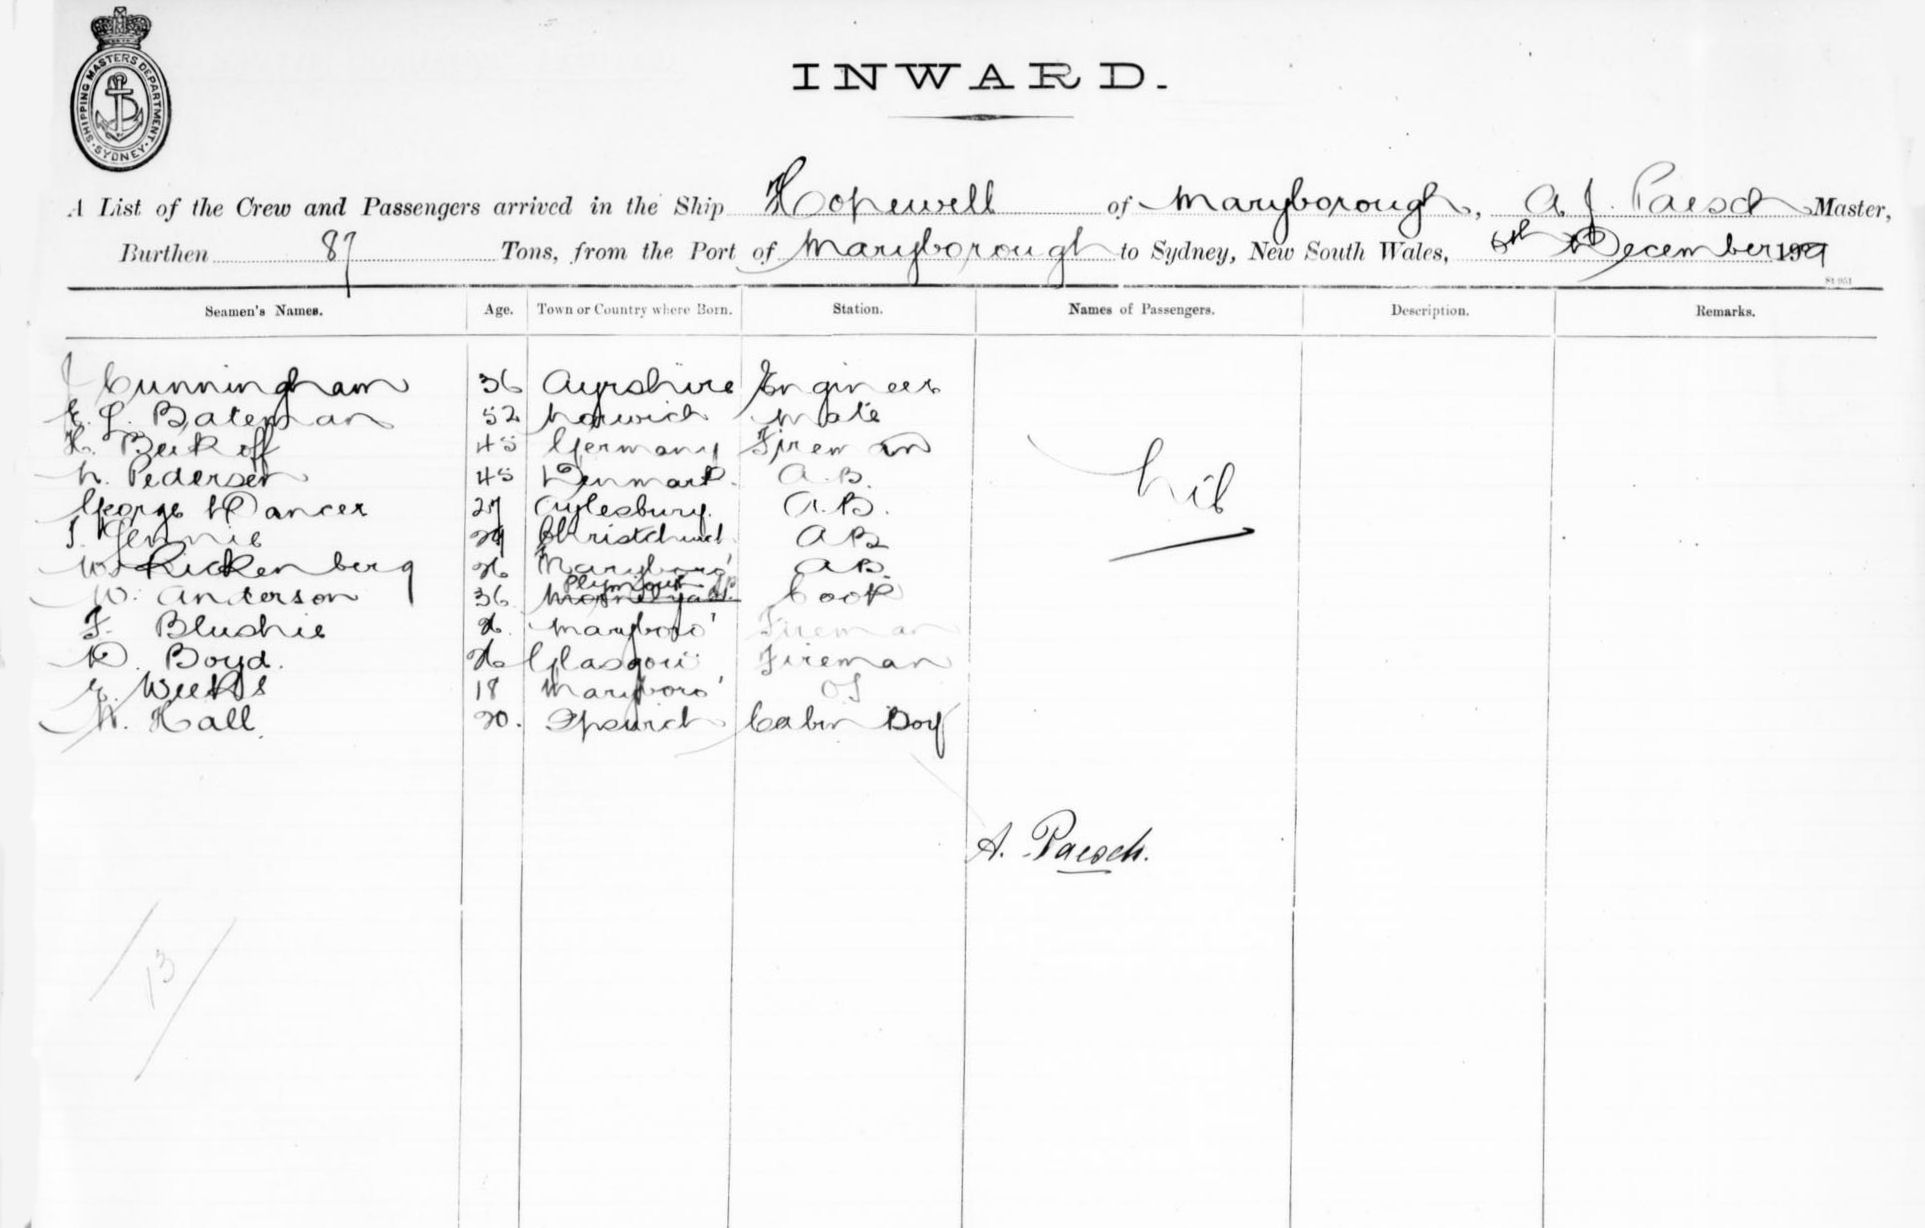 SHIPPING MASTERS DEPARTMENT. SYDNEY.
INWARD.
A List of the Crew and Passengers arrived in the Ship Hopewell of Maryborough, A. J. Paesch Master,
Burthen 87 Tons, from the Port of Maryborough to Sydney, New South Wales, 6th December
Seamen's Names. Age. Town or Country where Born. Station. Names of Passengers. Description. Remarks.
J Cunningham 36 Ayrshire Engineer
E. L. Bateman 52 Norwich Mate
H. Beikoff 45 Germany Fireman
N. Pedersen 45 Denmark. A.B.
Nil
George Dancer 27 Aylesbury. A.B.
29 Christchurch. AB
W. Rickenberg 26 Maryboro' AB.
Plymouth
W. Anderson 36 Cook
F. Blushie Maryboro' Fireman
D. Boyd. 26 Glasgow Fireman
Weeks 18 Maryboro' OS
W. Hall. 20. Ipswich Cabin Boy
A. Paesch.
13